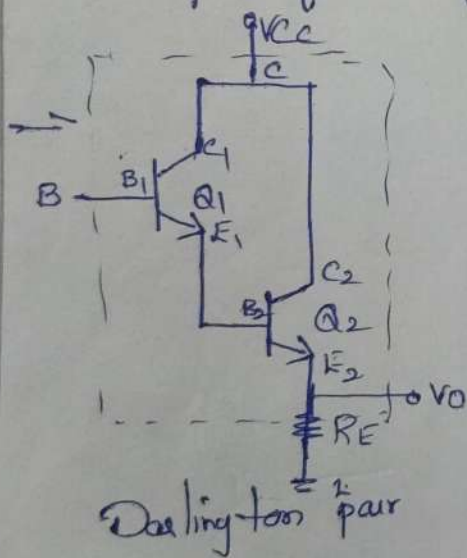 VCC
C
C1
B B1 Q1
E1
C2
B2 Q2
E2
VO
RE
Darlington pair